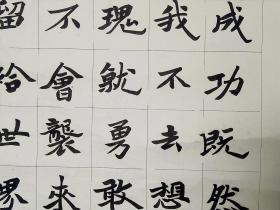 成功既然
我不去想
瑰就勇敢
不會襲來
留給世界